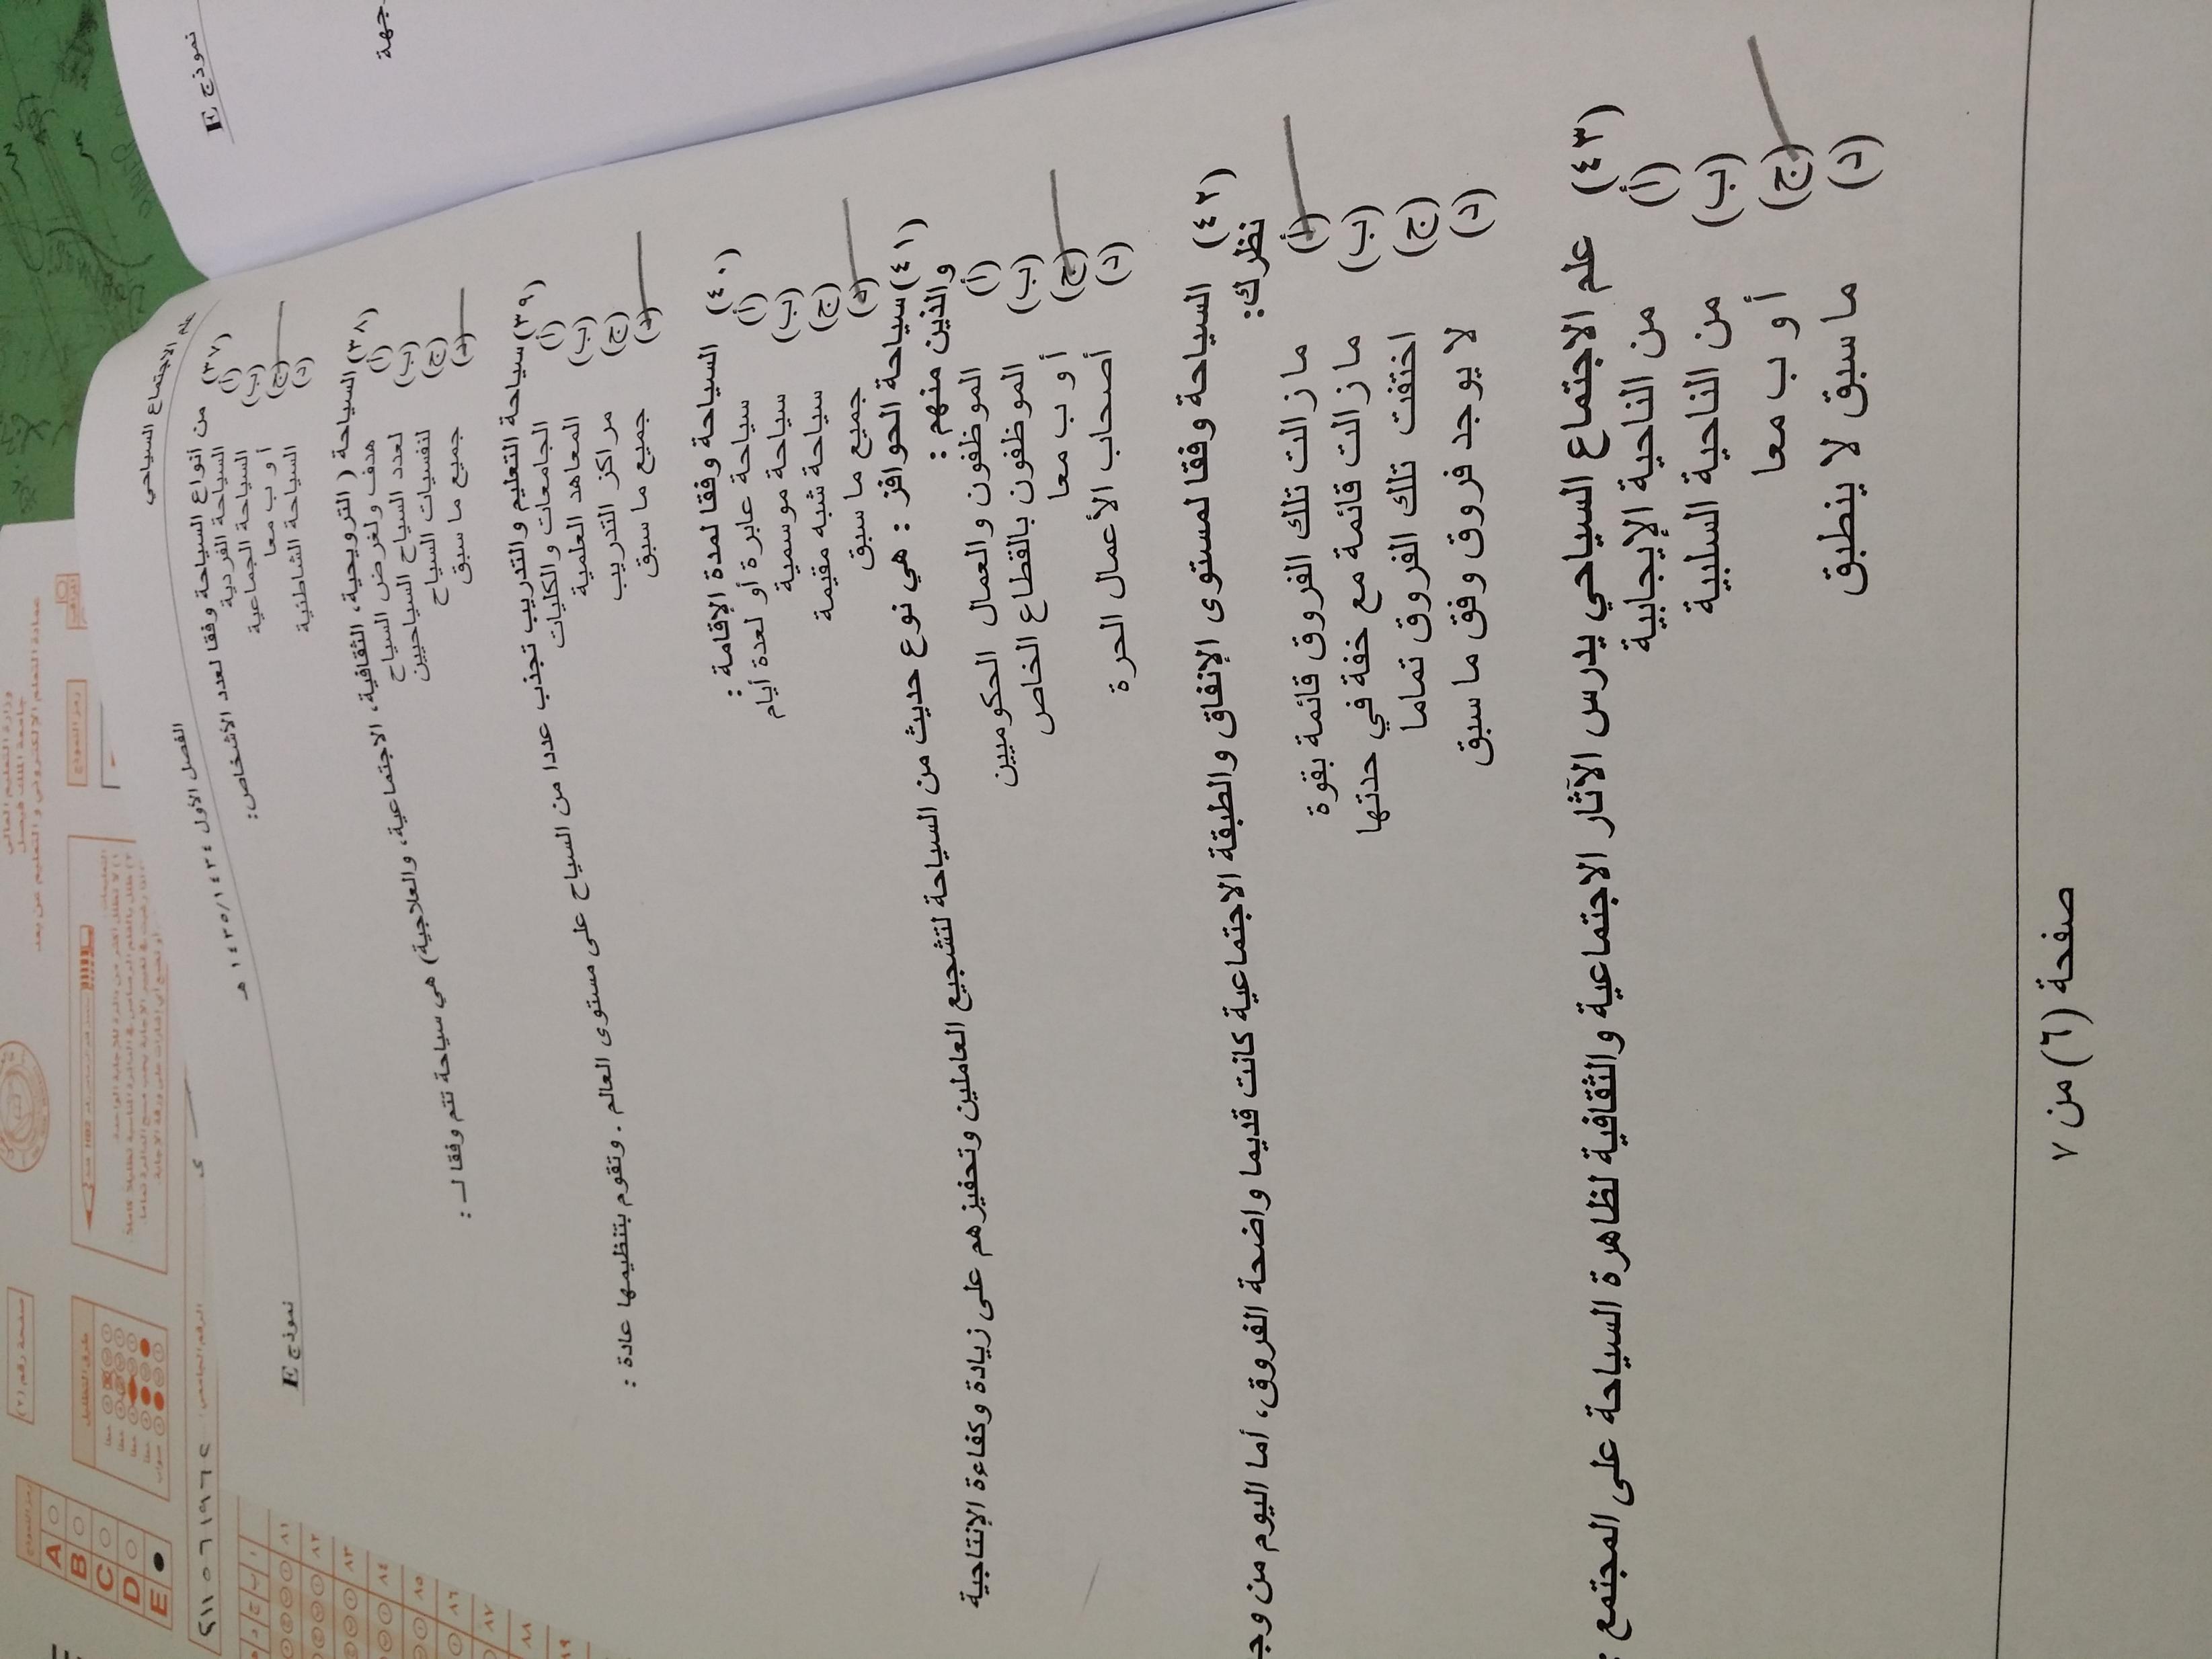 نموذج E
جهة
علم الاجتماع السياحي
الفصل الأول ١٤٣٤/١٤٣٥ هـ
نموذج E
(٣٧) من أنواع السياحة وفقا لعدد الأشخاص:
(أ) السياحة الفردية
(ب) السياحة الجماعية
(ج) أ و ب معا
(د) السياحة الشاطئية
(٣٨) السياحة (الترويحية، الثقافية، الاجتماعية، والعلاجية) هي سياحة تتم وفقا لـ :
(أ) هدف ولغرض السياح
(ب) لعدد السياح السياحيين
(ج) لنفسيات السياح
(د) جميع ما سبق
(٣٩) سياحة التعليم والتدريب تجذب عددا من السياح على مستوى العالم . وتقوم بتنظيمها عادة :
(أ) الجامعات والكليات
(ب) المعاهد العلمية
(ج) مراكز التدريب
(د) جميع ما سبق
(٤٠) السياحة وفقا لمدة الإقامة :
(أ) سياحة عابرة أو لعدة أيام
(ب) سياحة موسمية
(ج) سياحة شبه مقيمة
(د) جميع ما سبق
(٤١) سياحة الحوافز : هي نوع حديث من السياحة لتشجيع العاملين وتحفيزهم على زيادة وكفاءة الإنتاجية
والذين منهم :
(أ) الموظفون والعمال الحكوميين
(ب) الموظفون بالقطاع الخاص
(ج) أ و ب معا
(د) أصحاب الأعمال الحرة
(٤٢) السياحة وفقا لمستوى الإنفاق والطبقة الاجتماعية كانت قديما واضحة الفروق، أما اليوم من وجـ
نظرك:
(أ) ما زالت تلك الفروق قائمة بقوة
(ب) ما زالت قائمة مع خفة في حدتها
(ج) اختفت تلك الفروق تماما
(د) لا يوجد فروق وفق ما سبق
(٤٣) علم الاجتماع السياحي يدرس الآثار الاجتماعية والثقافية لظاهرة السياحة على المجتمع :
(أ) من الناحية الإيجابية
(ب) من الناحية السلبية
(ج) أ و ب معا
(د) ما سبق لا ينطبق
صفحة (٦) من ٧
وزارة التعليم العالي
جامعة الملك فيصل
عمادة التعلم الإلكتروني و التعليم عن بعد
رمز النموذج
صفحة رقم (٢)
طرق التظليل
خطأ
خطأ
خطأ
خطأ
صواب
الرقم الجامعي :
٢١١٥٠٦١٩٦٢
A
B
C
D
E
أ ب ج د
٨١
٨٢
٨٣
٨٤
٨٥
٨٦
٨٧
٨٨
٨٩